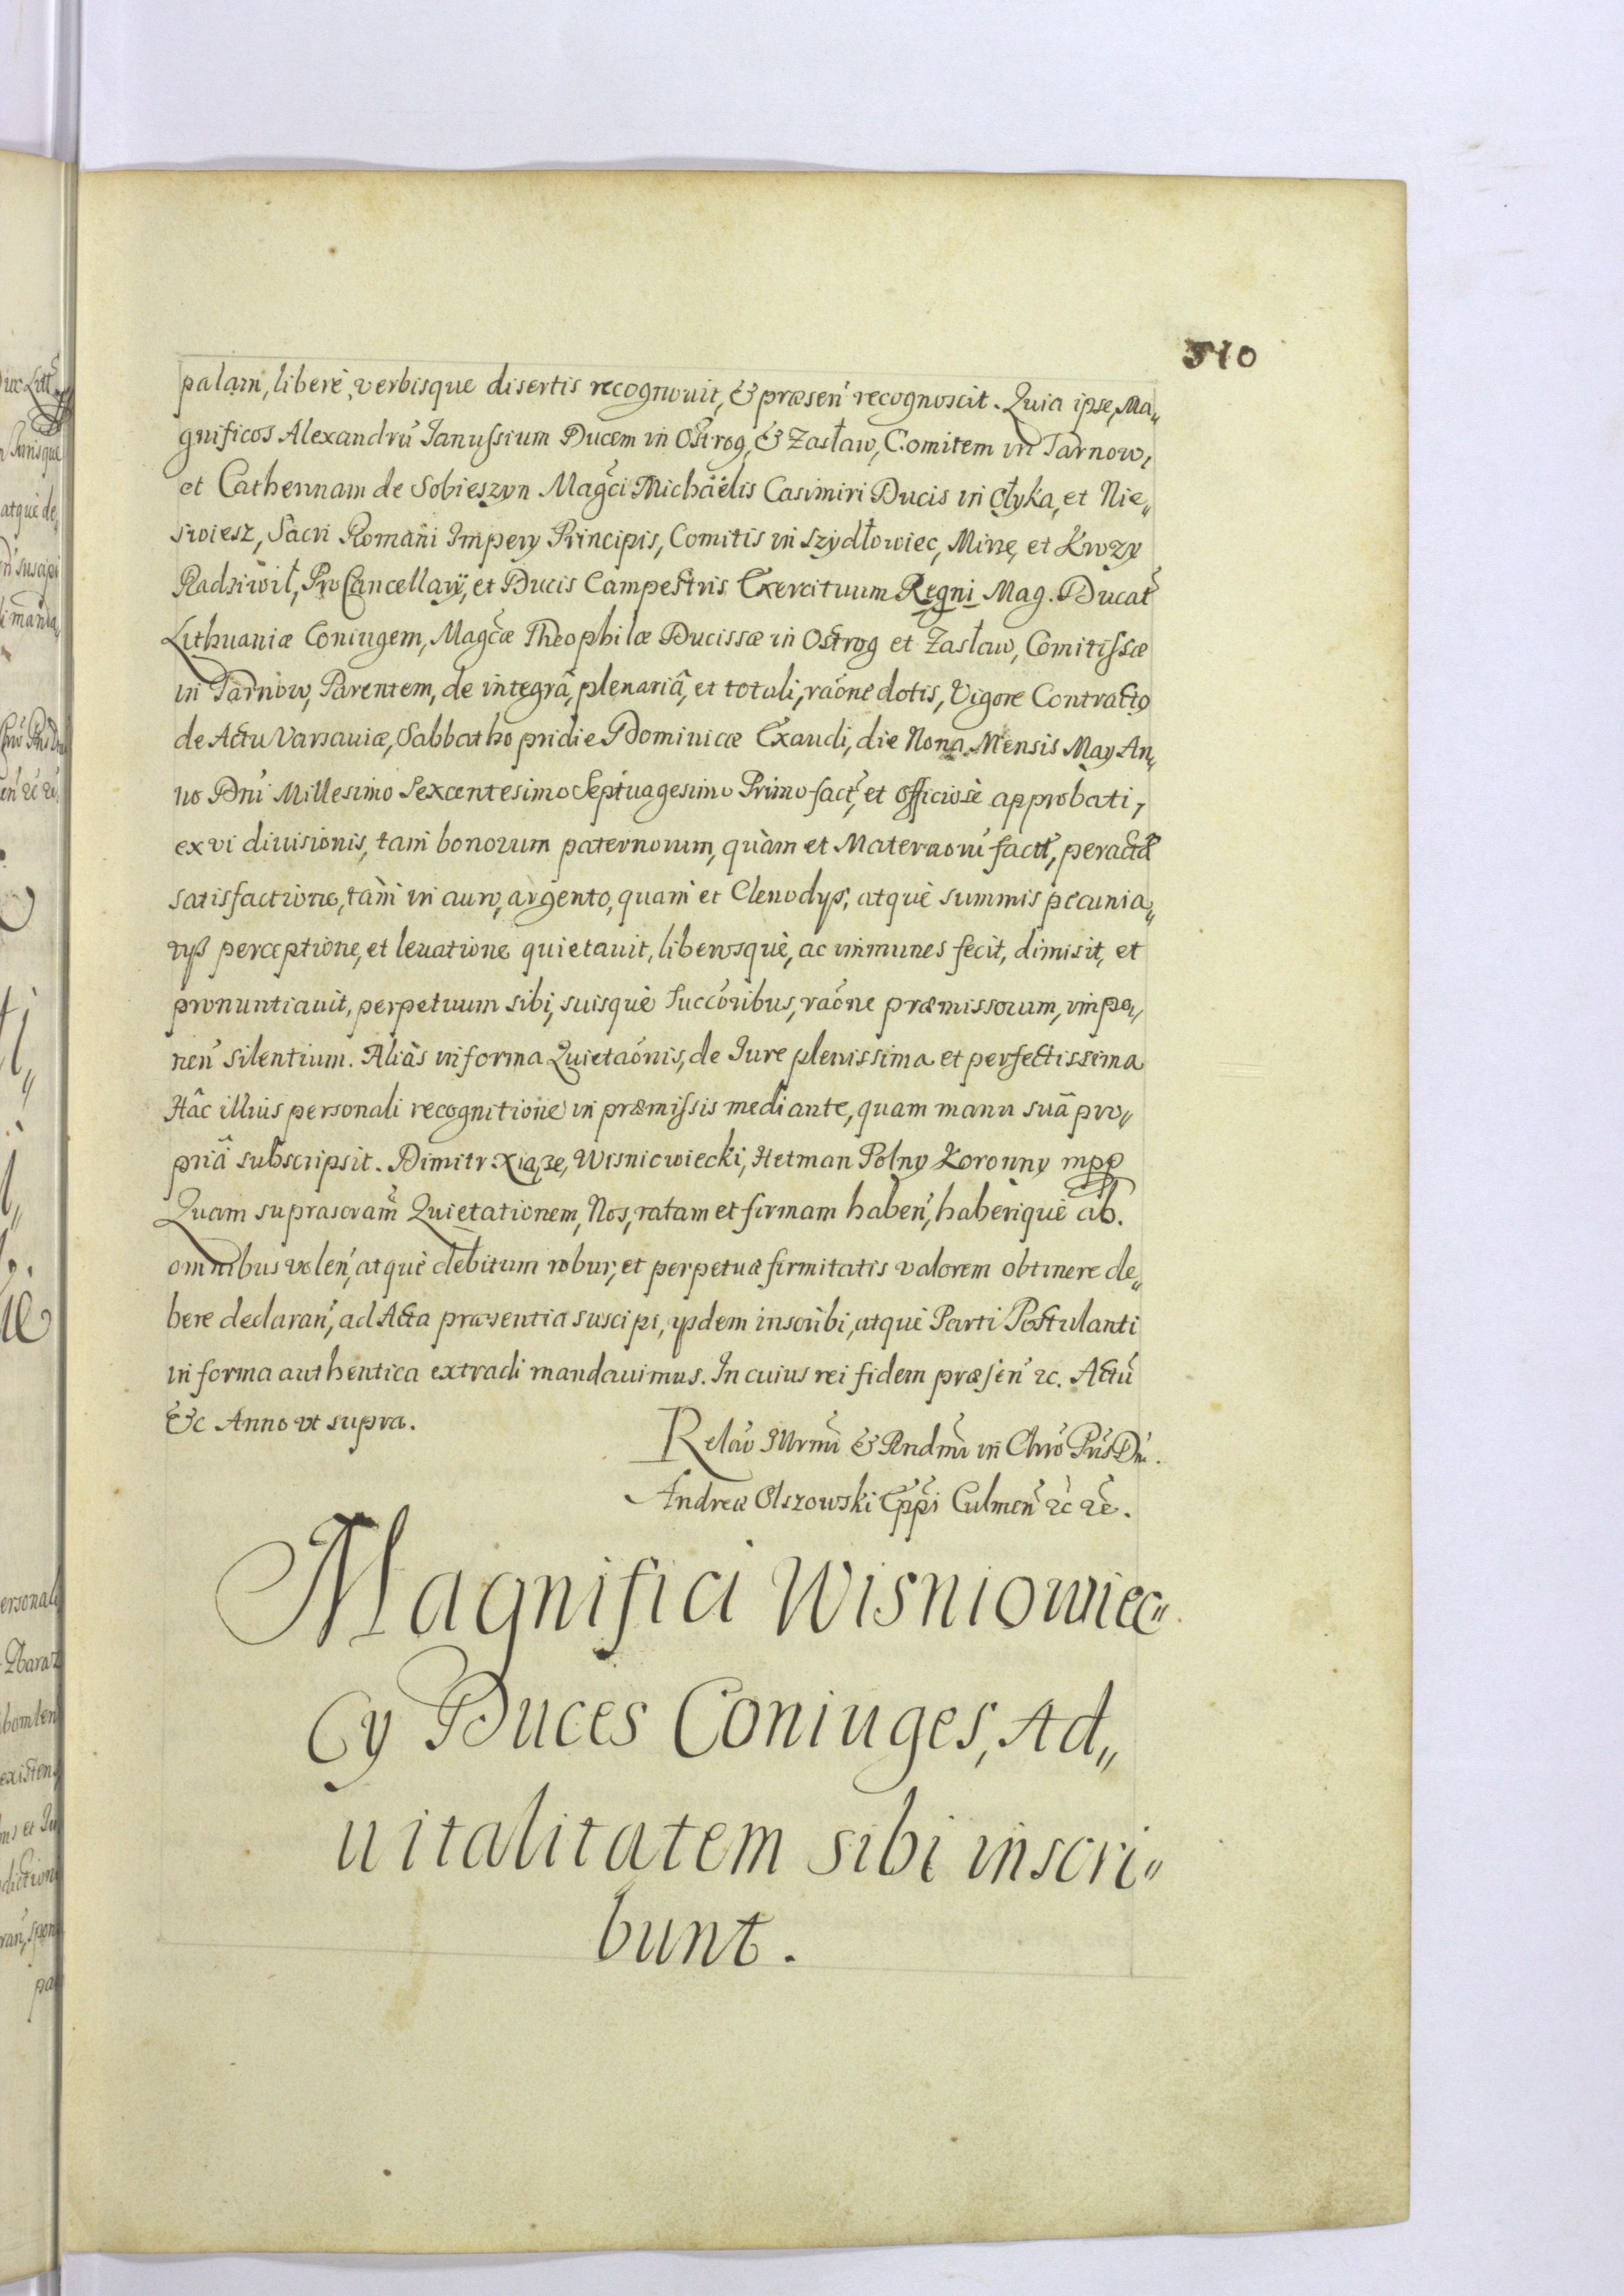 510
palam, liberè, verbisque disertis recognouit, & præsen̄ recognoscit. Quia ipse, Ma„
gnificos Alexandrū Janussium Ducem in Ostrog, & Zasław, Comitem in Tarnow,
et Catherinam de Sobieszyn Magci Michaëlis Casimiri Ducis in Ołyka, et Nie„
swiesz, Sacri Romani Impery Principis, Comitis in Szydłowiec, Mirze, et Krozy
Radziwił, ProCancellarÿ, et Ducis Campestris Exercituum Regni Mag. Ducat
Lithuaniæ Coniugem, Magcæ Theophilæ Ducissæ in Ostrog et Zasław, Comitissæ
in Tarnow, Parentem, de integrâ, plenariâ, et totali, raõne dotis, Vigore Contractꝰ
de Actu Varsauiæ, Sabbatho pridie Dominicæ Exaudi, die Nona Mensis May An„
no Dni Millesimo Sexcentesimo Septuagesimo Primo fact, et officiosè approbati,
ex vi diuisionis, tam bonorum paternorum, quàm et Maternorū factæ, peractâ
satisfactione, tàm in auro, argento, quam et Clenodys, atquè summis pecunia„
rys perceptione, et leuatione quietauit, liberosquè, ac immunes fecit, dimisit, et
pronuntiauit, perpetuum sibi, suisquè Succoribus, raõne præmissorum, impo„
nen̄ silentium. Aliàs in forma Quietaõnis, de Jure plenissima et perfectissima
Hâc illius personali recognitione in præmissis mediante, quam manu suâ pro„
priâ subscripsit. Dimitr Xiąze, Wisniowiecki, Hetman Polny Koronny mpp
Quam suprascram̄ Quietationem, Nos, ratam et firmam haben̄, haberiquè ab.
omnibus volen̄, atquè debitum robur, et perpetuæ firmitatis valorem obtinere de„
bere declaran̄, ad Acta præsentia suscipi, ysdem inscribi, atquè Parti Postulanti
in forma authentica extradi mandauimus. In cuius rei fidem præsen̄ ꝛc. Actū
&c Anno vt supra.
Relaõ Illrmi & Rndmi in Chro Pris Dni.
Andreæ Olszowski Eppi Culmen̄ ꝛc ꝛc.
Magnifici Wisniowiec„
Cy Duces Coniuges, Ad„
uitalitatem sibi inscri„
bunt.